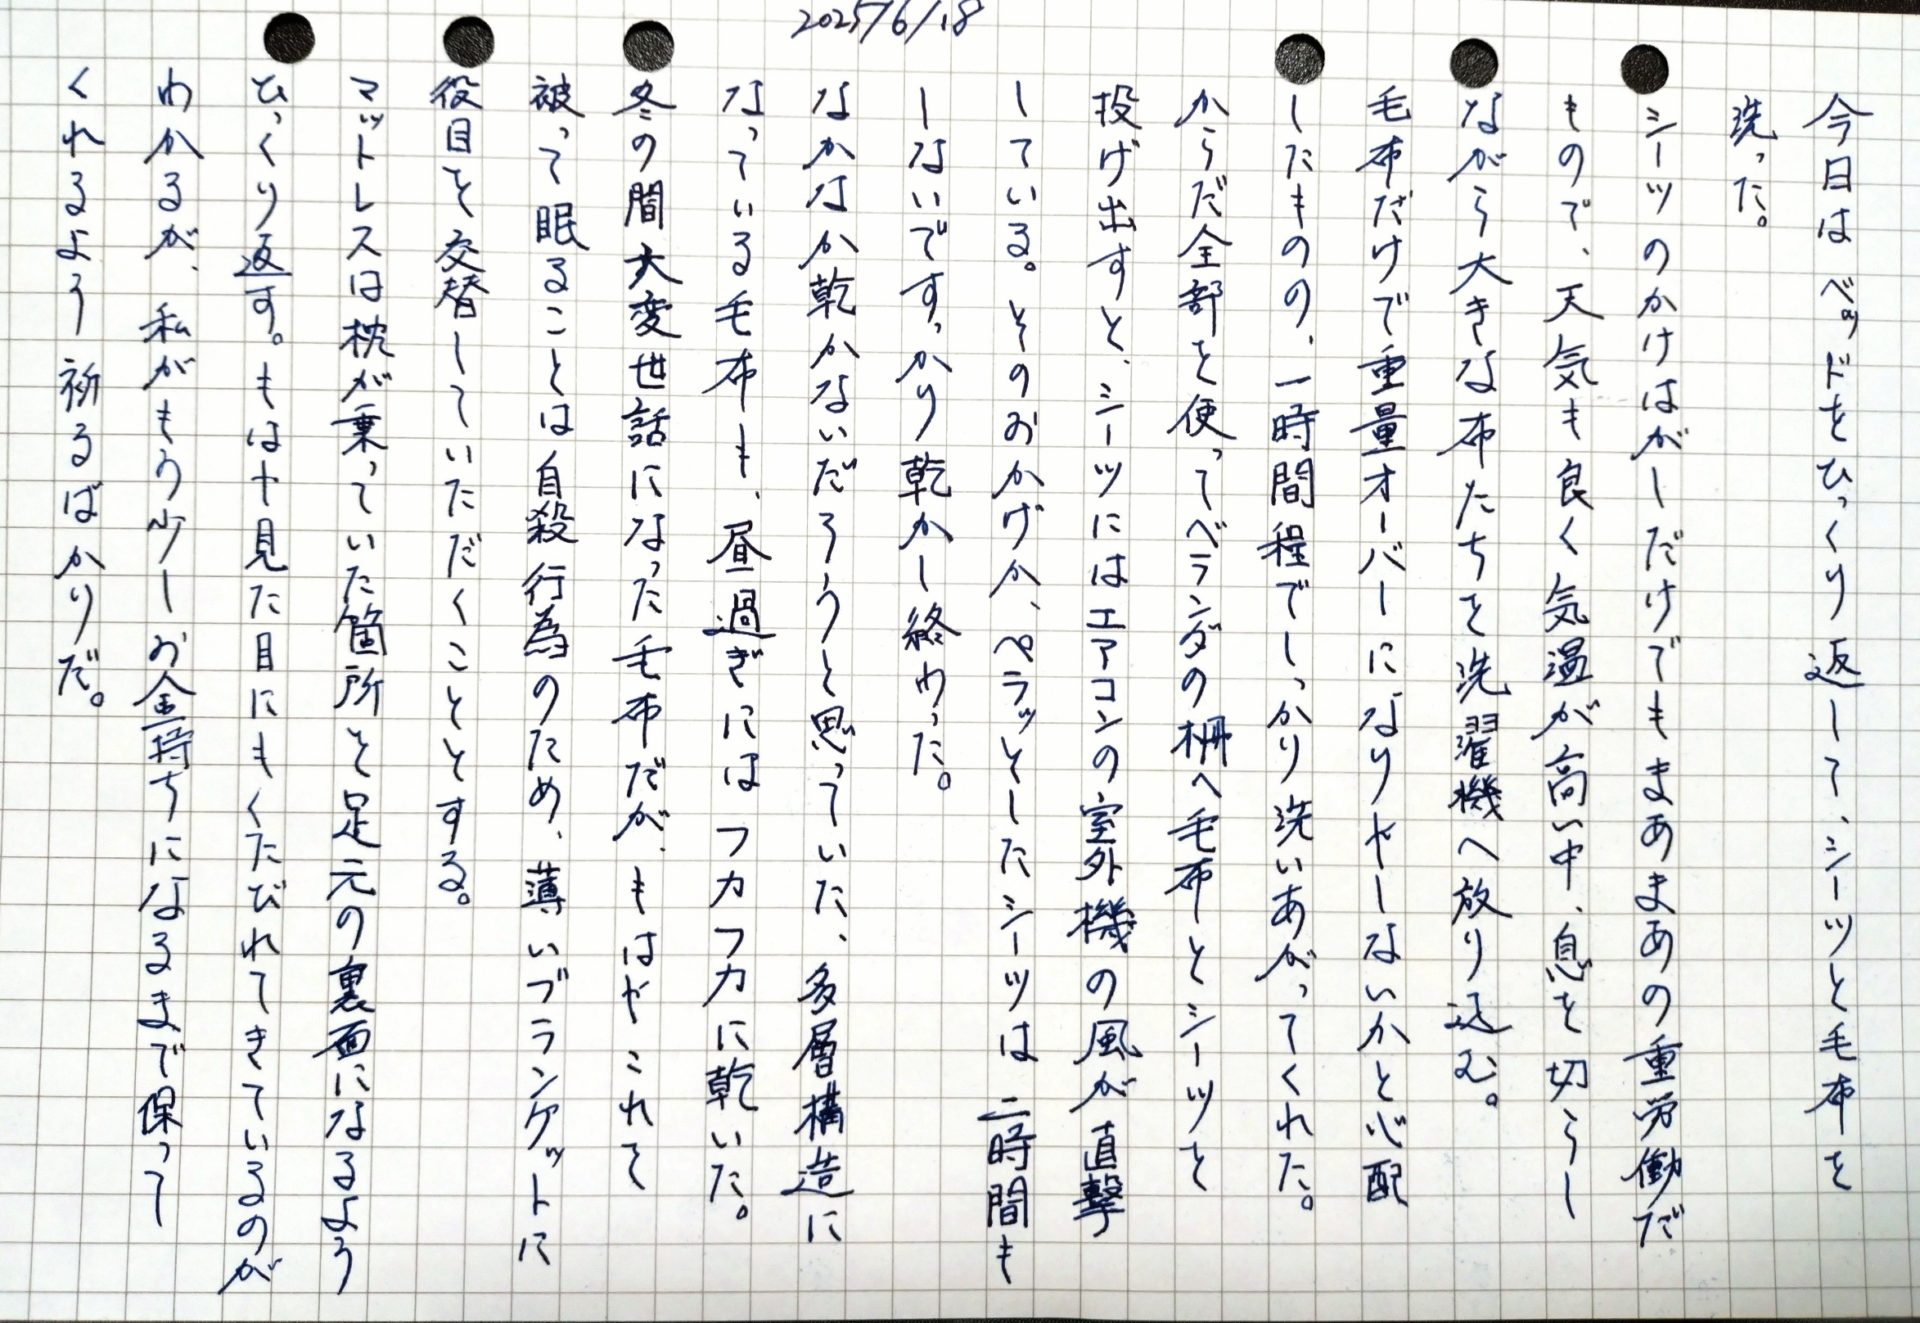 2025/6/18
今日はベッドをひっくり返して、シーツと毛布を
洗った。
シーツのかけはがしだけでもまあまあの重労働だ
もので、天気も良く気温が高い中、息を切らし
ながら大きな布たちを洗濯機へ放り込む。
毛布だけで重量オーバーになりやしないかと心配
したものの、一時間程でしっかり洗いあがってくれた。
からだ全部を使ってベランダの柵へ毛布とシーツを
投げ出すと、シーツにはエアコンの室外機の風が直撃
している。そのおかげか、ペラッとしたシーツは二時間も
しないですっかり乾かし終わった。
なかなか乾かないだろうと思っていた、多層構造に
なっている毛布も、昼過ぎにはフカフカに乾いた。
冬の間大変世話になった毛布だが、もはやこれを
被って眠ることは自殺行為のため、薄いブランケットに
役目を交替していただくこととする。
マットレスは枕が乗っていた箇所を足元の裏面になるよう
ひっくり返す。もはや見た目にもくたびれてきているのが
わかるが、私がもう少しお金持ちになるまで保って
くれるよう祈るばかりだ。